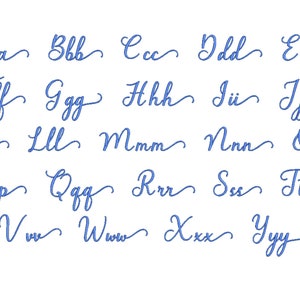 a Bbb Ccc Ddd E
f Ggg Hhh Iii J
Lll Mmm Nnn O
p Qqq Rrr Sss T
Vvv Www Xxx Yyy